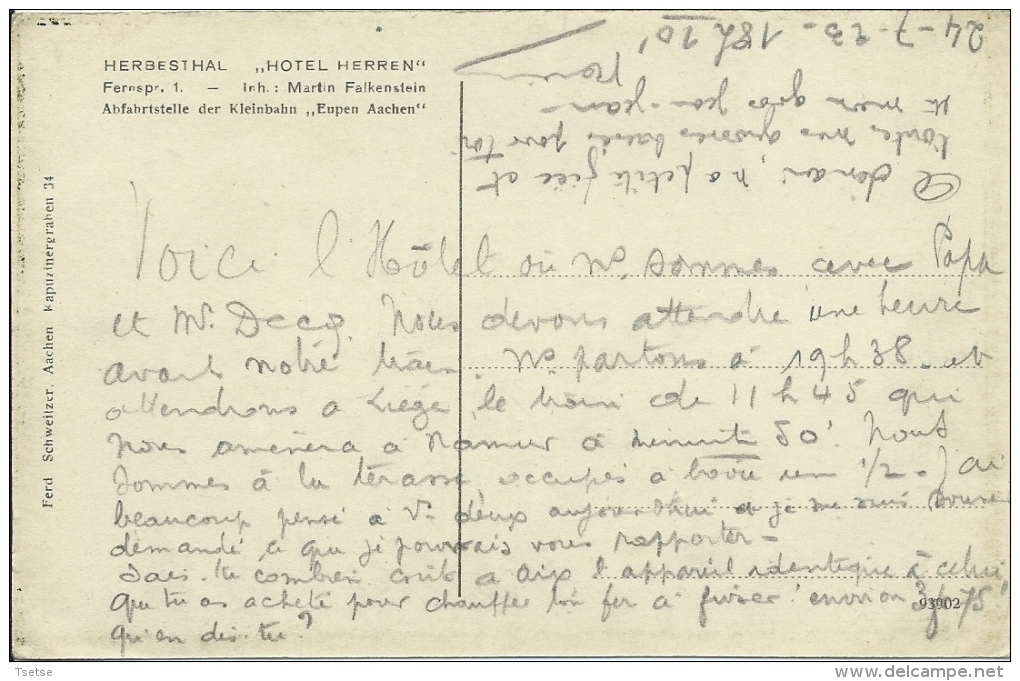 24-7-23 - 18h 20'
HERBESTHAL „HOTEL HERREN"
Fernspr. 1. — Inh.: Martin Falkenstein
Abfahrtstelle der Kleinbahn „Eupen Aachen"
Ferd Schweitzer, Aachen Kapuzinergraben 34
Voici l'Hôtel où ns. sommes avec Papa
et Mr. Decq. Nous devons attendre une heure
avant notre train. Ns partons à 19h38 et
attendrons a Liége le train de 11h45 qui
nous amènera à Namur à minuit 50'. Nous
sommes à la térasse occupés à boire un 1/2. J'ai
beaucoup pensé à Vs deux aujourd'hui et je me suis
demandé ce que je pourrais vous rapporter -
Sais-tu combien coûte a Aix l'appareil identique à celui
que tu as acheté pour chauffer ton fer à friser! environ 3f75!
qu'en dis-tu?
93902
A demain, ma petite fée et
toute mes baisers pour toi
et mon gros Jean-Jean
Tsetse
delcampe.net